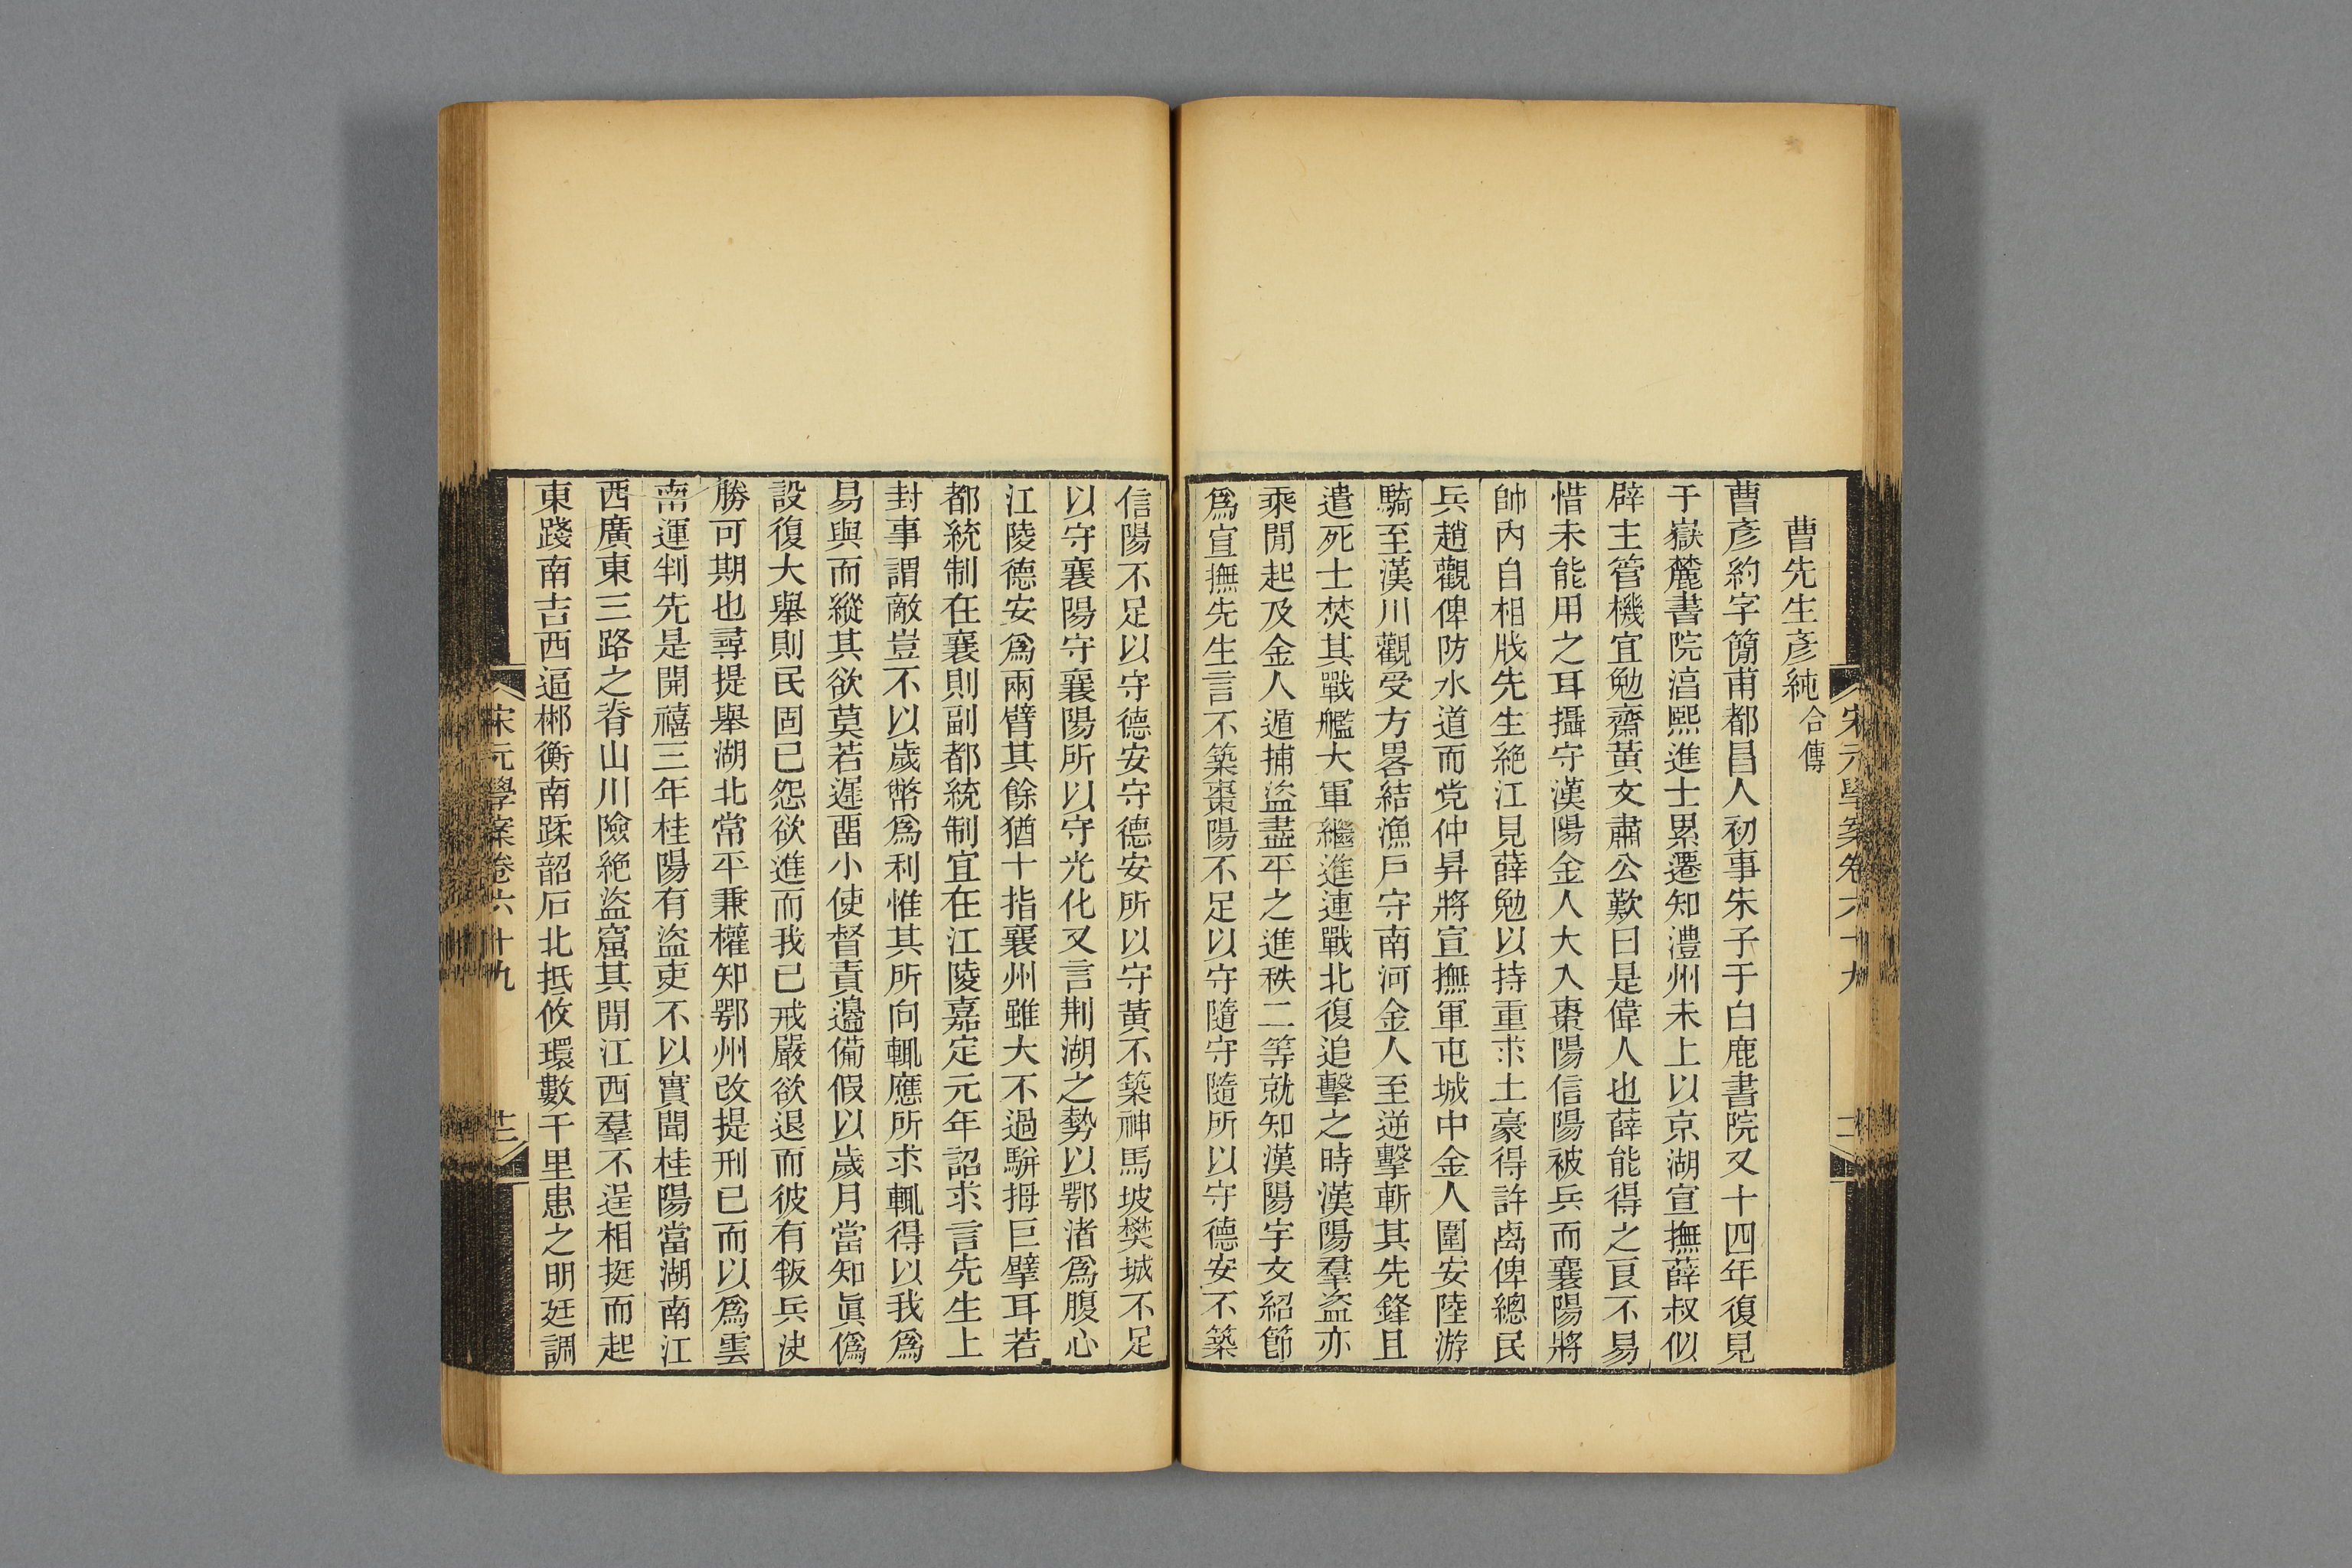 曹先生彥純合傳
曹彥約字簡甫都昌人初事朱子于白鹿書院又十四年復見
于嶽麓書院湻熙進士累遷知澧州未上以京湖宣撫薛叔似
辟主管機宜勉齋黃文肅公歎曰是偉人也薛能得之良不易
惜未能用之耳攝守漢陽金人大入棗陽信陽被兵而襄陽將
帥內自相戕先生絕江見薛勉以持重求土豪得許卨俾總民
兵趙觀俾防水道而党仲昇將宣撫軍屯城中金人圍安陸游
騎至漢川觀受方畧結漁戶守南河金人至逆擊斬其先鋒且
遣死士焚其戰艦大軍繼進連戰北復追擊之時漢陽羣盜亦
乘閒起及金人遁捕盜盡平之進秩二等就知漢陽宇文紹節
爲宣撫先生言不築棗陽不足以守隨守隨所以守德安不築
信陽不足以守德安守德安所以守黃不築神馬坡樊城不足
以守襄陽守襄陽所以守光化又言荆湖之勢以鄂渚爲腹心
江陵德安爲兩臂其餘猶十指襄州雖大不過駢拇巨擘耳若
都統制在襄則副都統制宜在江陵嘉定元年詔求言先生上
封事謂敵豈不以歲幣爲利惟其所向輒應所求輒得以我爲
易與而縱其欲莫若遲畱小使督責邊備假以歲月當知眞僞
設復大舉則民固已怨欲進而我已戒嚴欲退而彼有叛兵決
勝可期也尋提舉湖北常平兼權知鄂州改提刑已而以爲雲
南運判先是開禧三年桂陽有盜吏不以實聞桂陽當湖南江
西廣東三路之脊山川險絕盜窟其閒江西羣不逞相挺而起
東踐南吉西逼郴衡南蹂韶石北抵攸環數千里患之明廷調
宋元學案卷六十九